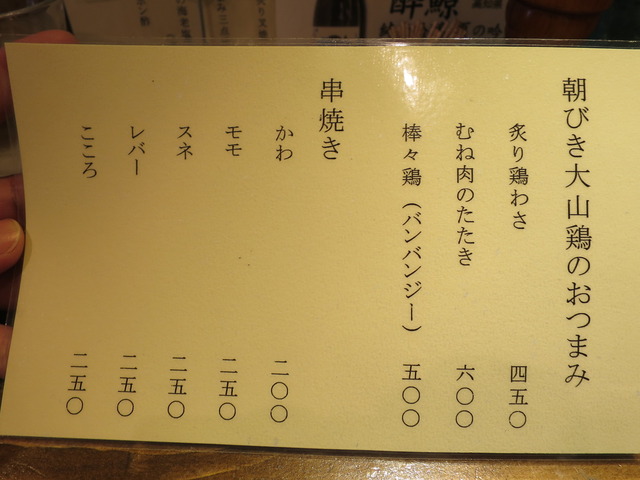 朝びき大山鶏のおつまみ
炙り鶏わさ 四五〇
むね肉のたたき 六〇〇
棒々鶏（バンバンジー） 五〇〇
串焼き
かわ 二〇〇
モモ 二五〇
スネ 二五〇
レバー 二五〇
こころ 二五〇
酔鯨
高知県